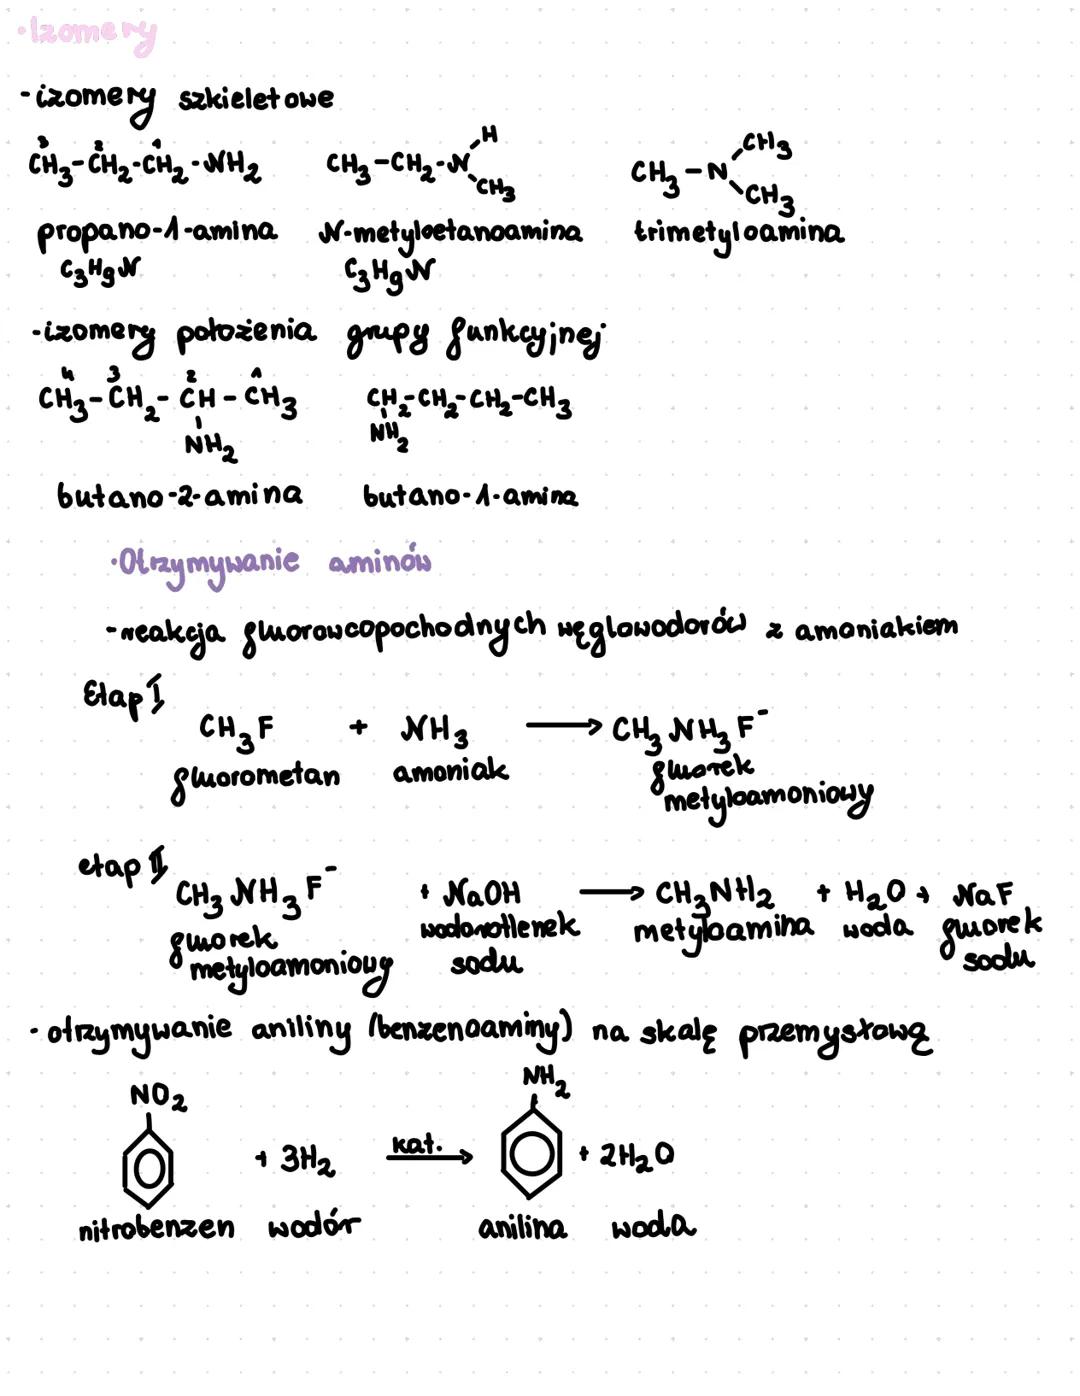 ·Izomery
-izomery szkieletowe
3 2 1
CH3-CH2-CH2-NH2 CH3-CH2-N H CH3 CH3-N CH3 CH3
propano-1-amina N-metyloetanoamina trimetyloamina
C3H9N C3H9N
-izomery położenia grupy funkcyjnej
4 3 2 1
CH3-CH2-CH-CH3 CH2-CH2-CH2-CH3
NH2 NH2
butano-2-amina butano-1-amina
·Otrzymywanie aminów
-reakcja fluorowcopochodnych węglowodorów z amoniakiem
Etap I
CH3F + NH3 → CH3NH3F-
fluorometan amoniak fluorek
metyloamoniowy
etap II
CH3NH3F- + NaOH → CH3NH2 + H2O + NaF
fluorek wodorotlenek metyloamina woda fluorek
metyloamoniowy sodu sodu
· otrzymywanie aniliny (benzenoaminy) na skalę przemysłową
NO2 NH2
+ 3H2 kat. → + 2H2O
nitrobenzen wodór anilina woda